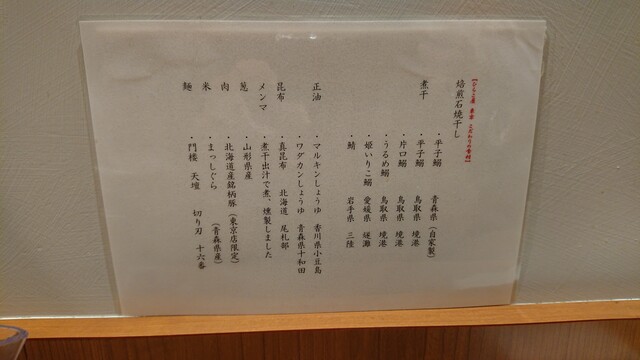 【ひらこ屋 東京 こだわりの食材】
焙煎石焼干し
・平子鰯 青森県(自家製)
煮干
・平子鰯 鳥取県 境港
・片口鰯 鳥取県 境港
・うるめ鰯 鳥取県 境港
・姫いりこ鰯 愛媛県 燧灘
・鯖 岩手県 三陸
正油
・マルキンしょうゆ 香川県小豆島
・ワダカンしょうゆ 青森県十和田
昆布
・真昆布 北海道 尾札部
メンマ
・煮干出汁で煮、燻製しました
葱
・山形県産
肉
・北海道産銘柄豚(東京店限定)
米
・まっしぐら (青森県産)
麺
・門楼 天壇 切り刃 十六番